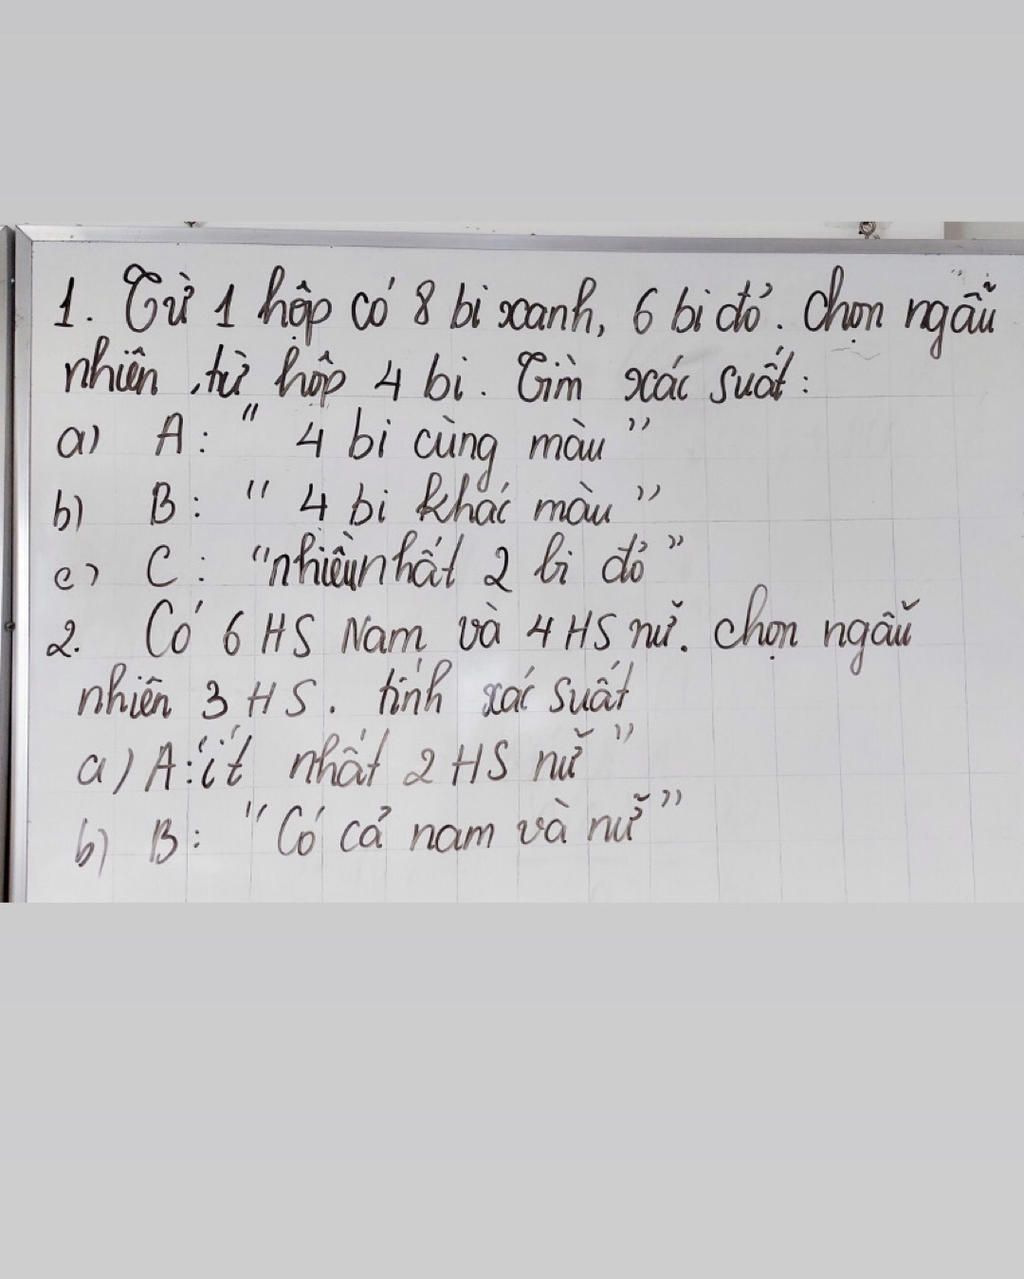 1. Từ 1 hộp có 8 bi xanh, 6 bi đỏ. Chọn ngẫu
nhiên từ hộp 4 bi. Tìm xác suất:
a) A: "4 bi cùng màu"
b) B: "4 bi khác màu"
c) C: "nhiều nhất 2 bi đỏ"
2. Có 6 HS Nam và 4 HS nữ. Chọn ngẫu
nhiên 3 HS. tính xác suất
a) A: "ít nhất 2 HS nữ"
b) B: "Có cả nam và nữ"